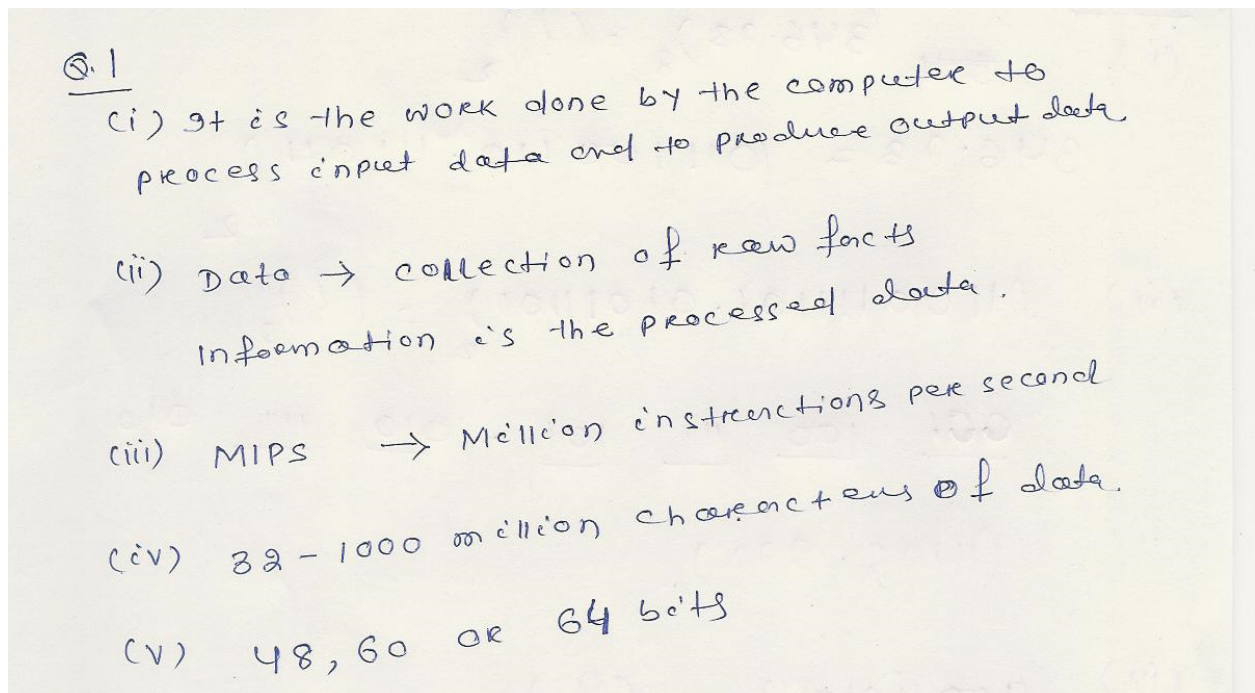 Q.1
(i) It is the work done by the computer to
process input data and to produce output data
(ii) Data → collection of raw facts
Information is the processed data.
(iii) MIPS → Million instructions per second
(iv) 32 - 1000 million characters of data.
(v) 48, 60 or 64 bits